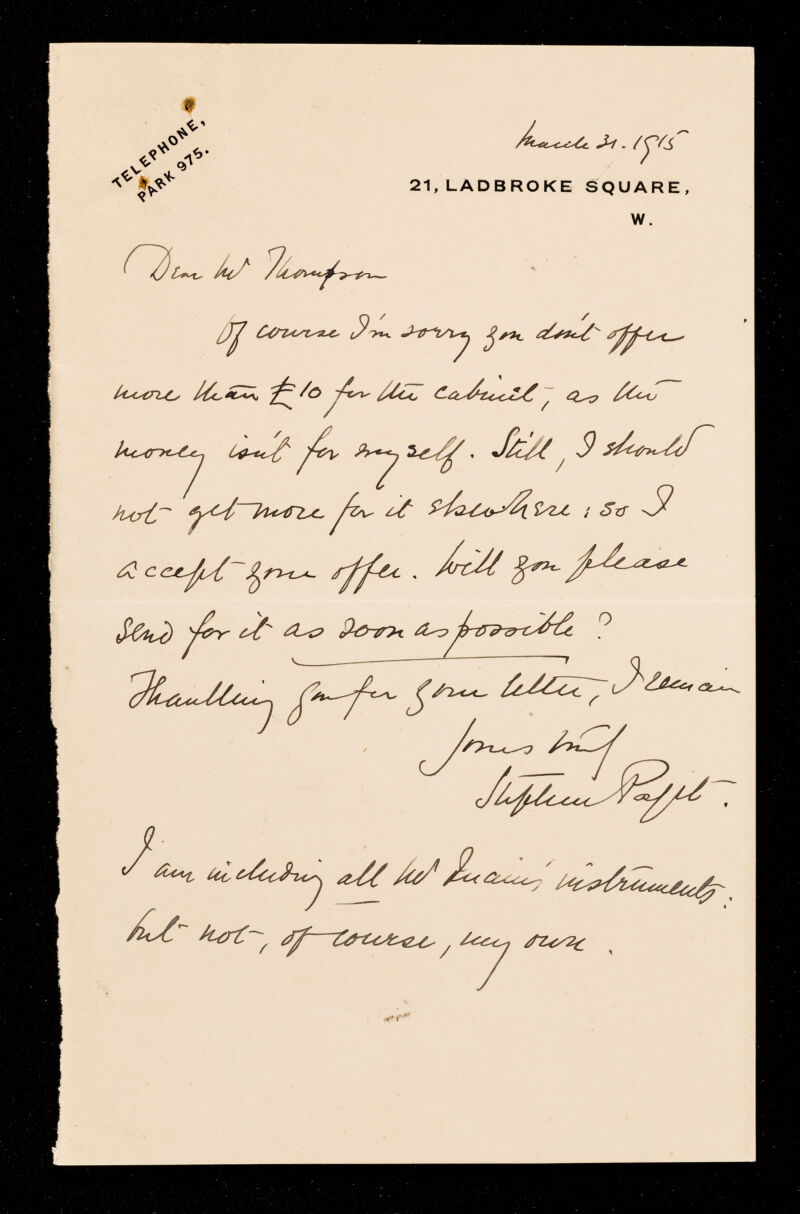 TELEPHONE,
PARK 975.
March 31. 1915
21, LADBROKE SQUARE,
W.
Dear Mr Thompson
Of course I'm sorry you don't offer
more than £10 for the cabinet, as the
money isn't for myself. Still, I should
not get more for it elsewhere: so I
accept your offer. Will you please
send for it as soon as possible?
Thanking you for your letter, I remain
Yours truly
Stephen Paget.
I am including all Mr instruments:
but not, of course, my own.